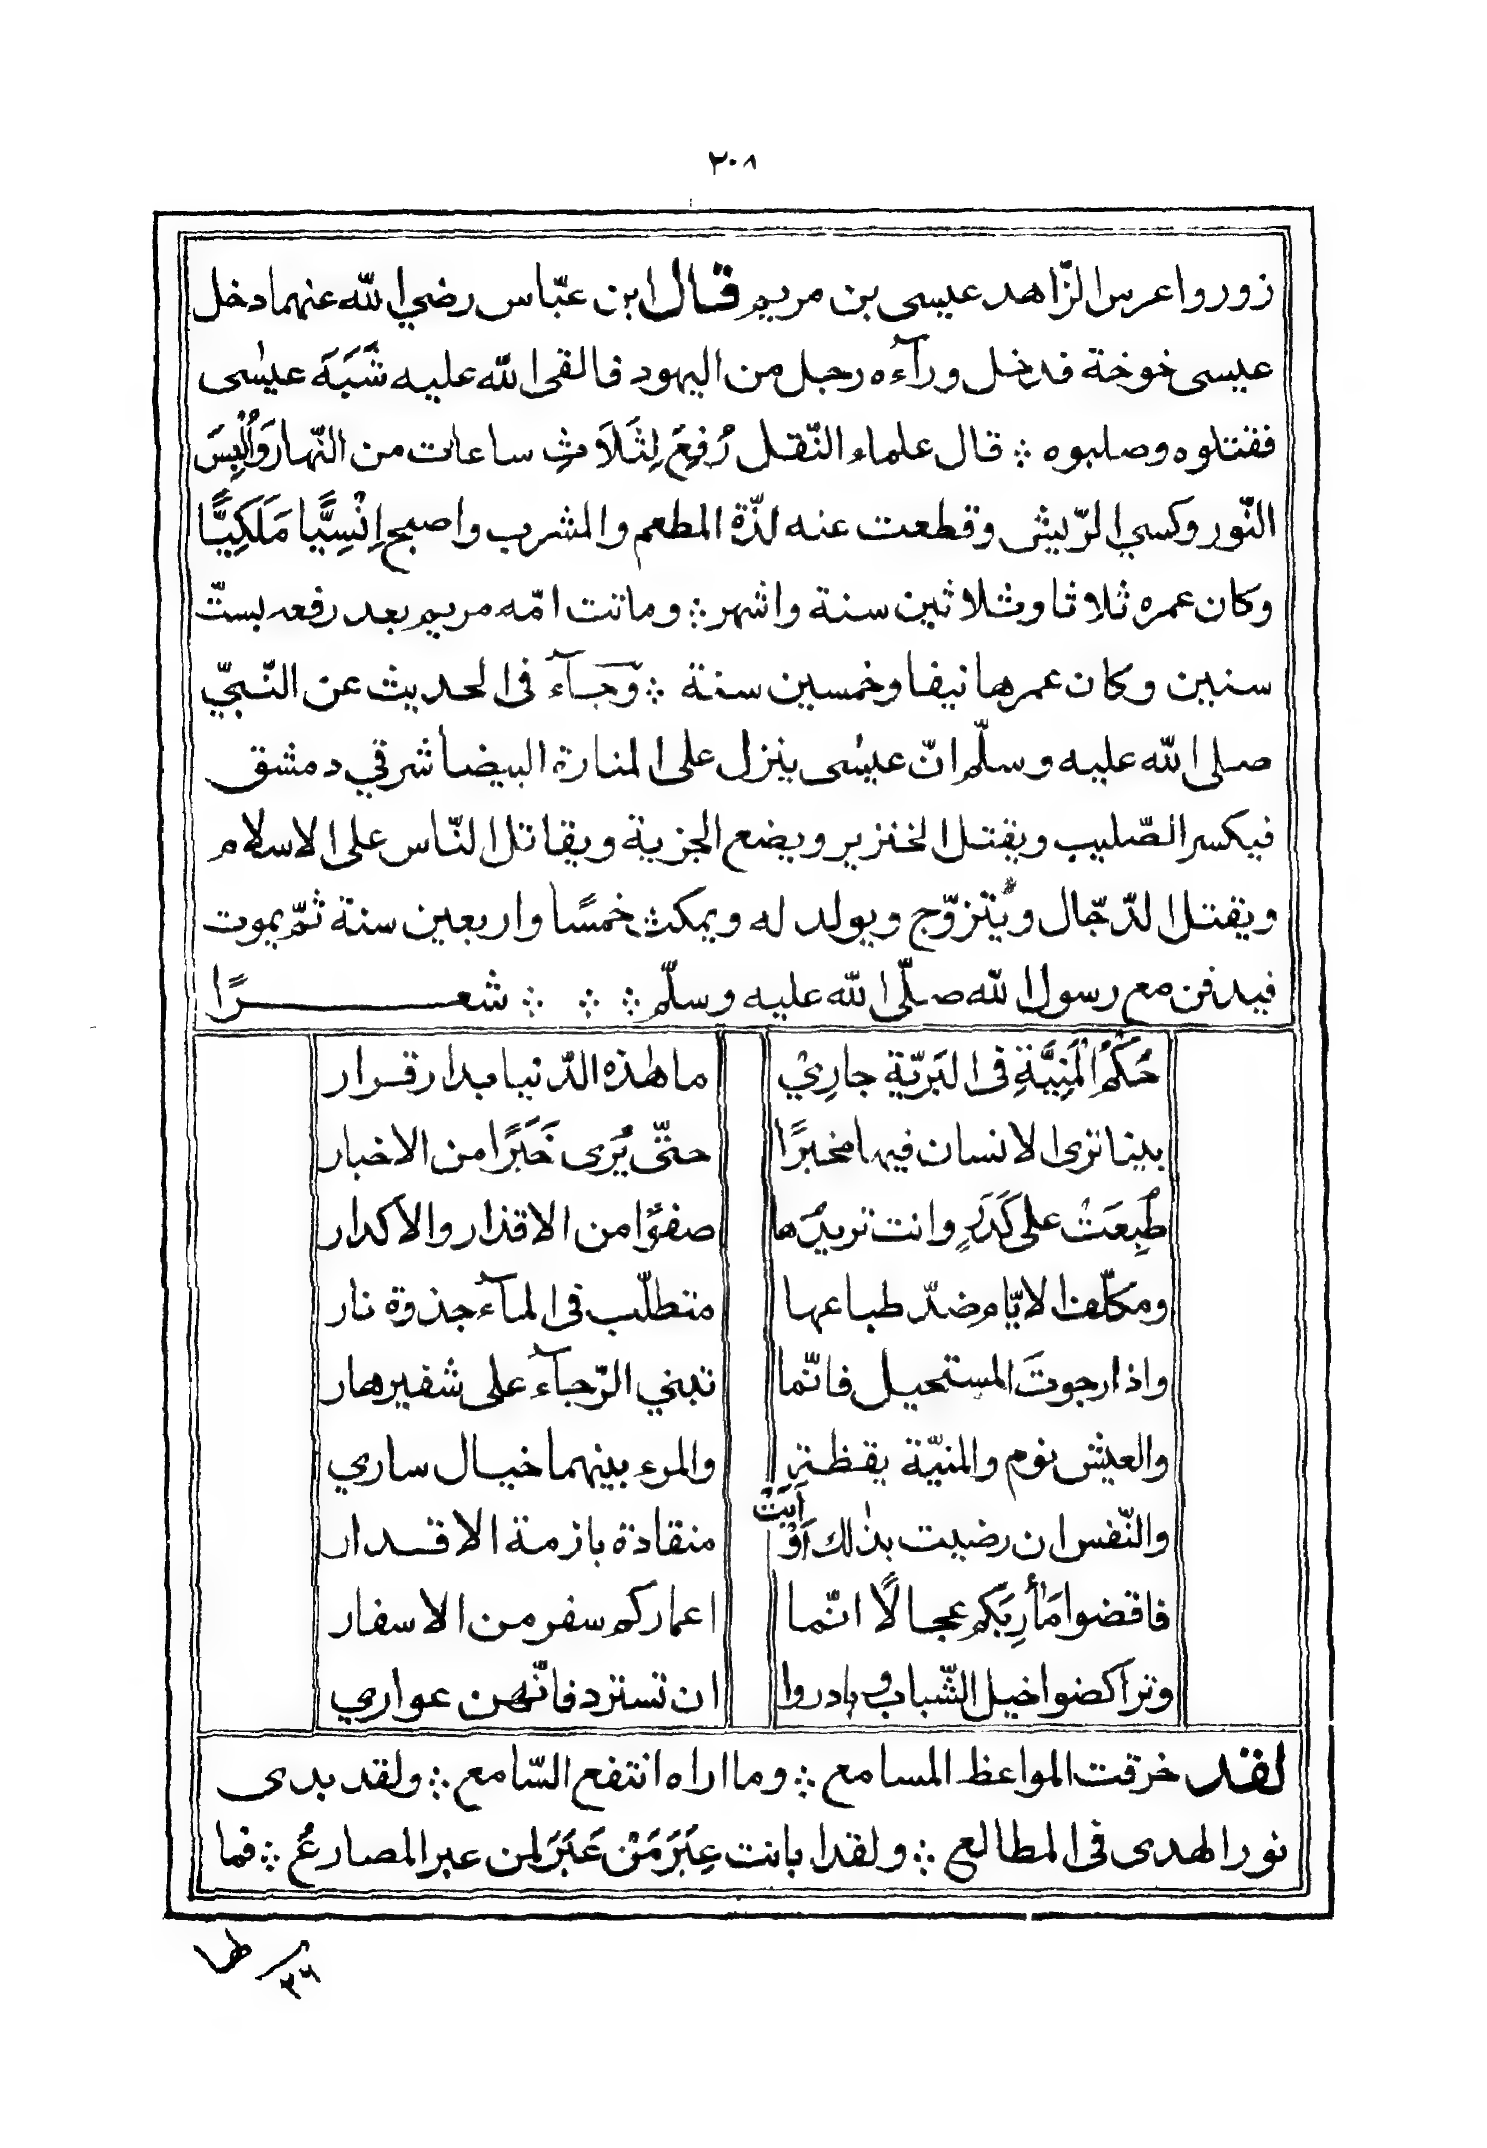 ٢٠٨
زوروا عرس الزّاهد عيسى بن مريم قال ابن عبّاس رضي الله عنهما دخل
عيسى خوخة فدخل ورآءه رجل من اليهود فالقى الله عليه شَبَهَ عيسٰى
فقتلوه وصلبوه ؞ قال علماء النّقل رُفِعَ لِثَلَاثِ ساعات من النّهار وَاُلْبِسَ
النّور وكسي الرّيش وقطعت عنه لذّة المطعم والمشرب واصبح اِنْسِيًّا مَلَكِيًّا
وكان عمره ثلاثا وثلاثين سنة واشهر ؞ وماتت امّه مريم بعد رفعه بستّ
سنين وكان عمرها نيفا وخمسين سنة ؞ وَجآء فى الحديث عن النّبيّ
صلى الله عليه وسلّم انّ عيسٰى ينزل على المنارة البيضا شرقي دمشق
فيكسر الصّليب ويقتل الخنزير ويضع الجزية ويقاتل النّاس على الاسلام
ويقتل الدّجّال ويتزوّج ويولد له ويمكث خمسًا واربعين سنة ثمّ يموت
فيدفن مع رسول الله صلّى الله عليه وسلّم ؞ ؞ ؞ شعـــرًا
حُكْمُ الْمَنِيَّةِ فى البَرِيّة جارِيْ ما هٰذه الدّنيا بدار قرار
بينا ترى الانسان فيها مخبرًا حتّى يُرى خَبَرًا من الاخبار
طُبِعَتْ على كَدَرٍ وانت تريدُها صفوًا من الاقذار والاكدار
ومكلّف الايّام ضدّ طباعها متطلّب فى المآء جذوة نار
واذا رجوتَ المستحيل فانّما تبني الرّجآء على شفير هار
والعيش نوم والمنيّة يقظة والمرء بينهما خيال ساري
والنّفس ان رضيت بذٰلك اَوْ اَبَتْ منقادة بازمة الاقدار
فاقضوا مَاٰرِبَكم عجالًا انّما اعماركم سفر من الاسفار
وتراكضوا خيل الشّباب وبادروا ان تسترد فانّهن عواري
لقد خرقت المواعظ المسامع ؞ وما اراه انتفع السّامع ؞ ولقد بدى
نور الهدى فى المطالع ؞ ولقد بانت عِبَرَ مَنْ عَبَرَ لمن عبر المصارعُ ؞ فما